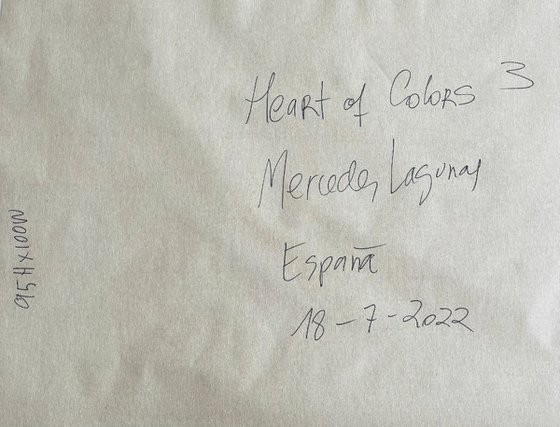 Heart of Colors 3
Mercedes Lagunas
España
18-7-2022
95H x 100W